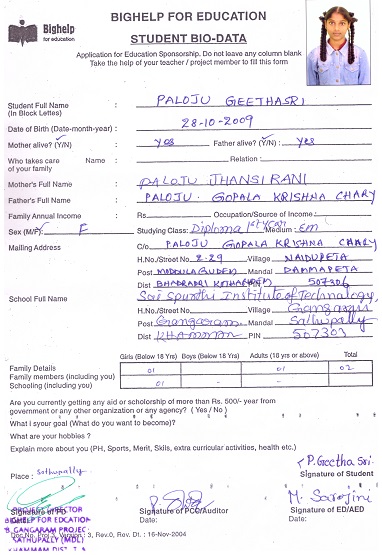 BIGHELP FOR EDUCATION
Bighelp
for education
STUDENT BIO-DATA
Application for Education Sponsorship. Do not leave any column blank
Take the help of your teacher / project member to fill this form
Student Full Name : PALOJU GEETHASRI
(In Block Letters)
Date of Birth (Date-month-year) : 28-10-2009
Mother alive? (Y/N) : yes Father alive? (Y/N) : yes
Who takes care Name : Relation :
of your family
Mother's Full Name : PALOJU JHANSI RANI
Father's Full Name : PALOJU. GOPALA KRISHNA CHARY
Family Annual Income : Rs. Occupation/Source of Income:
Sex (M/F) : F Studying Class: Diploma 1st year Medium: Em
Mailing Address C/o PALOJU GOPALA KRISHNA CHARY
H.No/Street No. 2-29 Village NAIDUPETA
Post MADDULAGUDEM Mandal DAMMAPETA
Dist BHADRADRI KOTHAGUDEM 507306
School Full Name : Sai Spurthi Institute of Technology,
H.No/Street No. Village Gangaram
Post Gangaram Mandal Sathupally
Dist KHAMMAM PIN 507303
Girls (Below 18 Yrs) Boys (Below 18 Yrs) Adults (18 yrs or above) Total
Family Details
Family members (including you) 01 01 02
Schooling (including you) 01 - -
Are you currently getting any aid or scholarship of more than Rs. 500/- year from
government or any other organization or any agency? ( Yes / No )
What is your goal (What do you want to become)?
What are your hobbies ?
Explain more about you (PH, Sports, Merit, Skils, extra curricular activities, health etc.)
P. Geetha Sri
Signature of Student
Place : Sathupally
M. Sarojini
Signature of PD Signature of PCC/Auditor Signature of ED/AED
Date: Date:
PROJECT DIRECTOR
BIGHELP FOR EDCATION
GANGARAM PROJECT
SATHUPALLY (MDL)
KHAMMAM DIST T
Doc.No. 3, Rev.0, Rev, Dt. : 16-Nov-2004